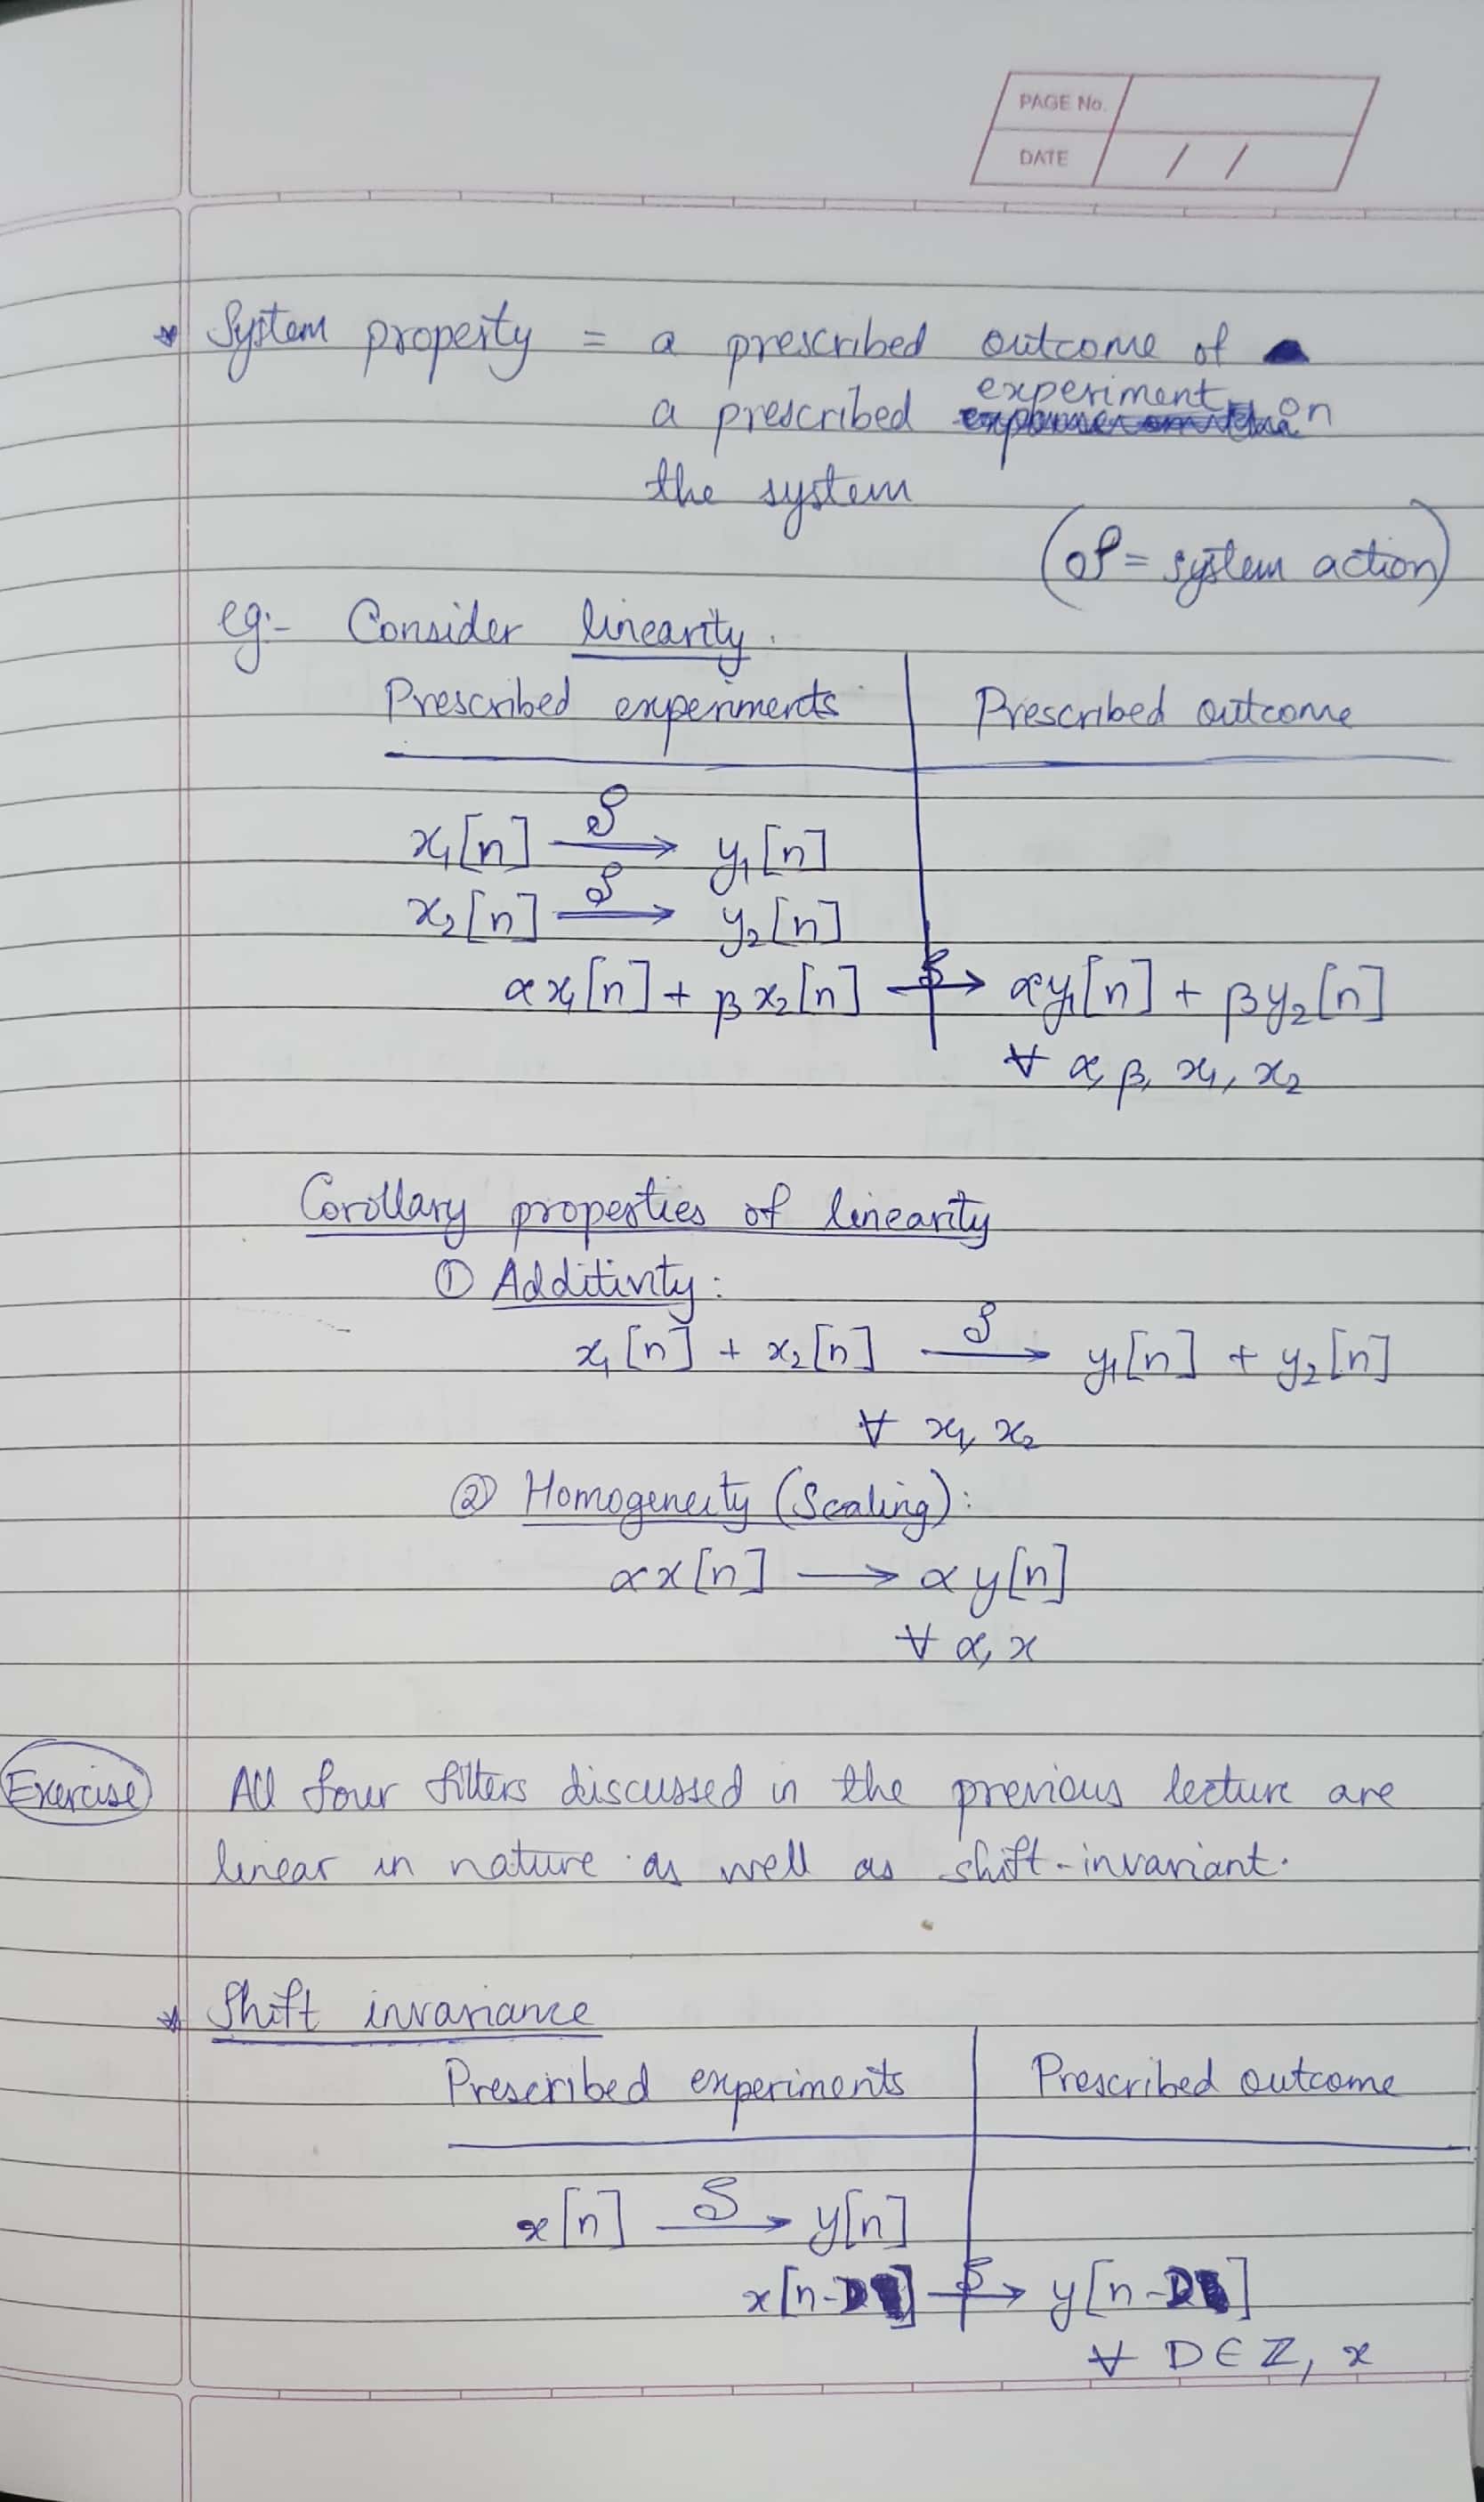 PAGE No.
DATE / /
* System property = a prescribed outcome of
a prescribed experiment on
the system
(𝒮 = system action)
eg:- Consider linearity.
Prescribed experiments | Prescribed outcome
x₁[n] —𝒮→ y₁[n]
x₂[n] —𝒮→ y₂[n]
αx₁[n] + βx₂[n] —𝒮→ αy₁[n] + βy₂[n]
∀ α, β, x₁, x₂
Corollary properties of linearity
① Additivity:
x₁[n] + x₂[n] —𝒮→ y₁[n] + y₂[n]
∀ x₁, x₂
② Homogeneity (Scaling):
αx[n] ⟶ αy[n]
∀ α, x
Exercise All four filters discussed in the previous lecture are
linear in nature as well as shift-invariant.
* Shift invariance
Prescribed experiments | Prescribed outcome
x[n] —𝒮→ y[n]
x[n-D] —𝒮→ y[n-D]
∀ D∈ℤ, x